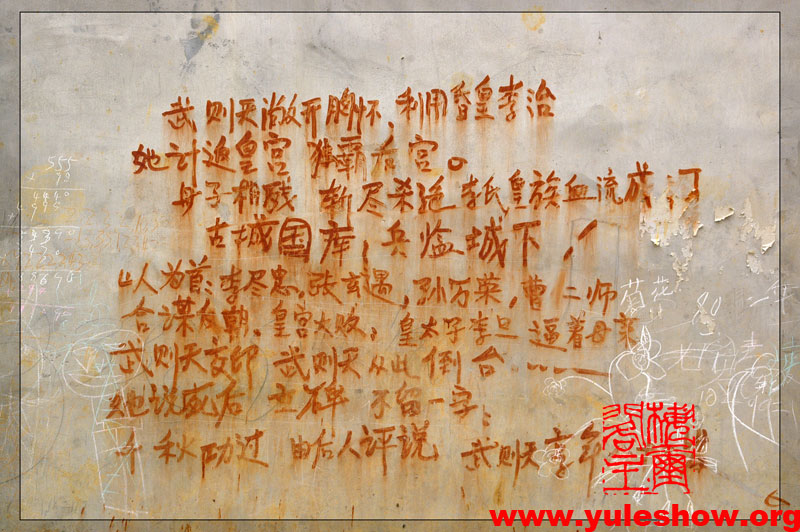 武则天敞开胸怀，利用昏皇李治
她计追皇宫 独霸后宫。
母子相残 斩尽杀绝 李氏皇族血流成河
古城国库，兵临城下，
山人为首：李尽忠，张玄遇，孙万荣，曹二师
合谋反朝，皇宫大败；皇太子李旦 逼着母亲
武则天交印 武则天从此 倒台……
她说死后 立石碑 不留一字；
千秋功过 由后人评说 武则天 享年
菊花
www.yuleshow.org